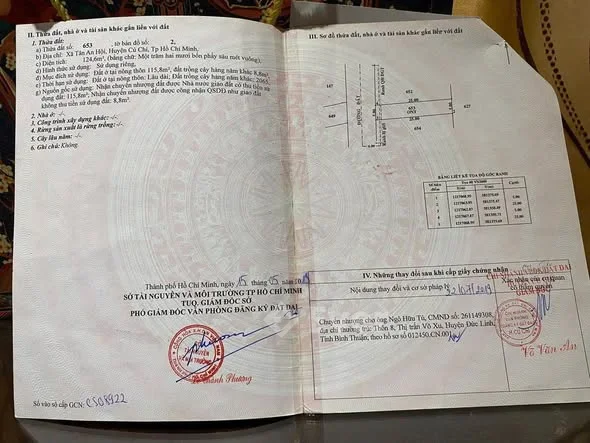 II. Thửa đất, nhà ở và tài sản khác gắn liền với đất
1. Thửa đất:
a) Thửa đất số: 653 , tờ bản đồ số: 2,
b) Địa chỉ: Xã Tân An Hội, Huyện Củ Chi, Tp Hồ Chí Minh,
c) Diện tích: 124,6m², (bằng chữ: Một trăm hai mươi bốn phẩy sáu mét vuông),
d) Hình thức sử dụng: Sử dụng riêng,
đ) Mục đích sử dụng: Đất ở tại nông thôn 115,8m²; Đất trồng cây hàng năm khác 8,8m²,
e) Thời hạn sử dụng: Đất ở tại nông thôn: Lâu dài; Đất trồng cây hàng năm khác: 2065,
g) Nguồn gốc sử dụng: Nhận chuyển nhượng đất được Nhà nước giao đất có thu tiền sử
dụng đất: 115,8m²; Nhận chuyển nhượng đất được công nhận QSDĐ như giao đất
không thu tiền sử dụng đất: 8,8m².
2. Nhà ở: -/-
3. Công trình xây dựng khác: -/-
4. Rừng sản xuất là rừng trồng: -/-
5. Cây lâu năm: -/-
6. Ghi chú: Không.
Thành phố Hồ Chí Minh, ngày 15 tháng 05
SỞ TÀI NGUYÊN VÀ MÔI TRƯỜNG TP HỒ CHÍ MINH
TUQ. GIÁM ĐỐC SỞ
PHÓ GIÁM ĐỐC VĂN PHÒNG ĐĂNG KÝ ĐẤT ĐAI
Thanh Phương
Số vào sổ cấp GCN: CS08922
III. Sơ đồ thửa đất, nhà ở và tài sản khác gắn liền với đất
147
652
649
ĐƯỜNG ĐẤT
25.00
653
ONT
25.00
5.00
627
654
BẢNG LIỆT KÊ TỌA ĐỘ GÓC RANH
IV. Những thay đổi sau khi cấp giấy chứng nhận
Nội dung thay đổi và cơ sở pháp lý
Xác nhận của cơ quan
có thẩm quyền
Chuyển nhượng cho ông Ngô Hữu Tú, CMND số: 261149308,
địa chỉ thường trú: Thôn 8, Thị trấn Võ Xu, Huyện Đức Linh,
Tỉnh Bình Thuận; theo hồ sơ 012450.CN.001
Võ Văn An